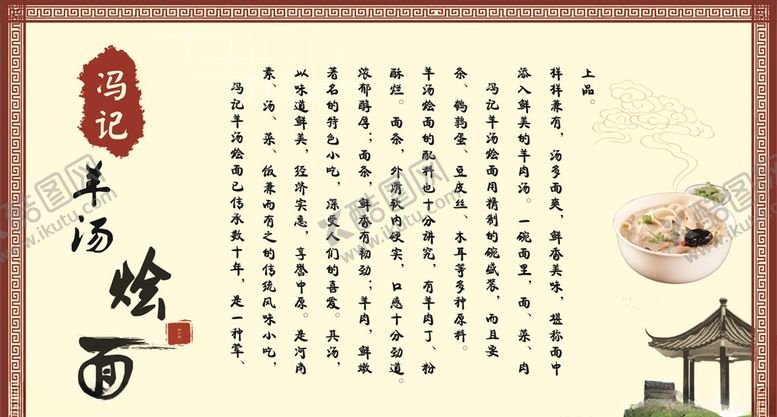 冯记
羊汤
烩面
冯记羊汤烩面已传承数十年，是一种荤、
素、汤、菜、饭兼而有之的传统风味小吃，
以味道鲜美，经济实惠，享誉中原。是河南
著名的特色小吃，深受人们的喜爱。其汤，
浓郁醇厚；面条，鲜香有韧劲；羊肉，鲜嫩
酥烂。面条，外滑软内硬实，口感十分劲道。
羊汤烩面的配料也十分讲究，有羊肉丁、粉
条、鹌鹑蛋、豆皮丝、木耳等多种原料。
冯记羊汤烩面用精制的碗盛装，而且要
添入鲜美的羊肉汤。一碗面里，面、菜、肉
样样兼有，汤多面爽，鲜香美味，堪称面中
上品。
酷图网
www.ikutu.com